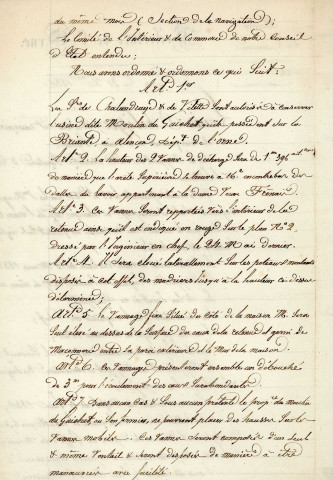 du même mois (Section de la navigation);
Le Comité de l'Intérieur & de Commerce de notre Conseil
d'Etat entendu;
Nous avons ordonné & ordonnons ce qui Suit:
Art. 1er
Les Srs de Chalandrey & de Vilette Sont autorisés à conserver
l'usine dite Moulin du Guichet qu'ils possèdent sur la
Briante, à Alençon, Dépt. de l'orne.
Art. 2. La hauteur des Vannes de décharge Sera de 1m 396
de manière que l'arête Supérieure se trouve à 16 en contrebas des
dalles du lavoir appartenant à la dame Veuve
Art. 3. Ces Vannes Seront rapportées Vers l'intérieur de la
retenue ainsi qu'il est indiqué en rouge Sur le plan No. 2
dressé par l'Ingénieur en chef le 24 Mai dernier.
Art. 4. Il Sera élevé latérallement Sur les poteaux montants
disposés à cet effet, des madriers jusqu'à la hauteur ci-dessus
déterminée;
Art. 5. Le Vannage Situé du côté de la maison M. Sera
Seul élevé au dessus de la Surface des eaux de la retenue et garni de
Maçonnerie entre la paroi extérieure & le Mur de la maison.
Art. 6. Ces Vannages présenteront ensemble un débouché
de 3m pour l'écoulement des eaux Surabondantes.
Art. 7. Dans aucun cas & Sous aucun prétexte le propre. du moulin
du Guichet ou Son fermier, ne pourront placer des hausses Sur les
Vannes mobiles. Ces Vannes Seront composées d'un Seul
& même Ventail & Seront disposées de manière à être
manœuvrées avec facilité.